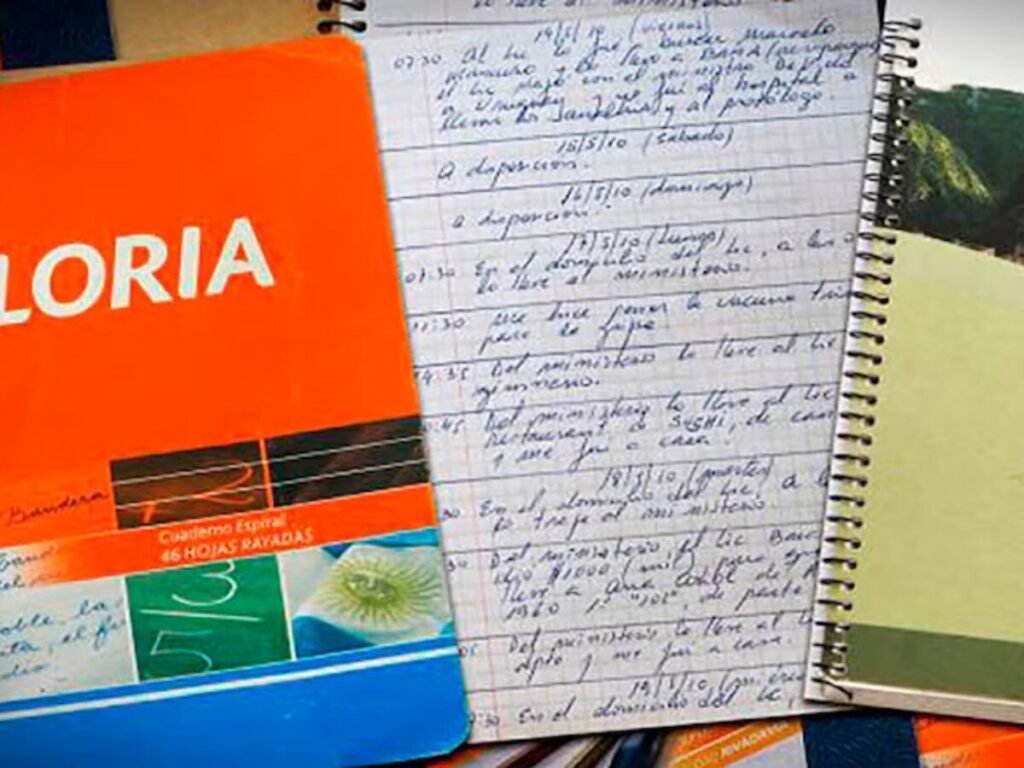 LORIA
Bandera
Cuaderno Espiral
46 HOJAS RAYADAS
5/3
oble, la
el
lo lleve al ministerio
14/5/10 (viernes)
07:30 Al Lic lo fui a buscar
y lo lleve a BAMA
el Lic viajó con el ministro De Vido
a Uruguay y me fui al hospital a
llevar los y al protólogo.
15/5/10 (sabado)
a disposicion.
16/5/10 (domingo)
a disposicion.
17/5/10 (Lunes)
07:30 En el domicilio del Lic, a las
lo lleve al ministerio.
11:30 me hice poner la vacuna
para la gripe
4:35 Del ministerio lo lleve al Lic
gimnasio.
:45 Del ministerio lo lleve al Lic
restaurant de SUSHI, de
y me fui a casa.
18/5/10 (martes)
30 En el domicilio del Lic, a l
lo traje al ministerio.
30 Del ministerio, el Lic
dejo $1000 (mil) para que
lleve a
1960 1° "102", de parte
05 Del ministerio lo lleve al L
dpto y me fui a casa.
19/5/10
:30 En el domicilio del Lic,
RIVADAVIA